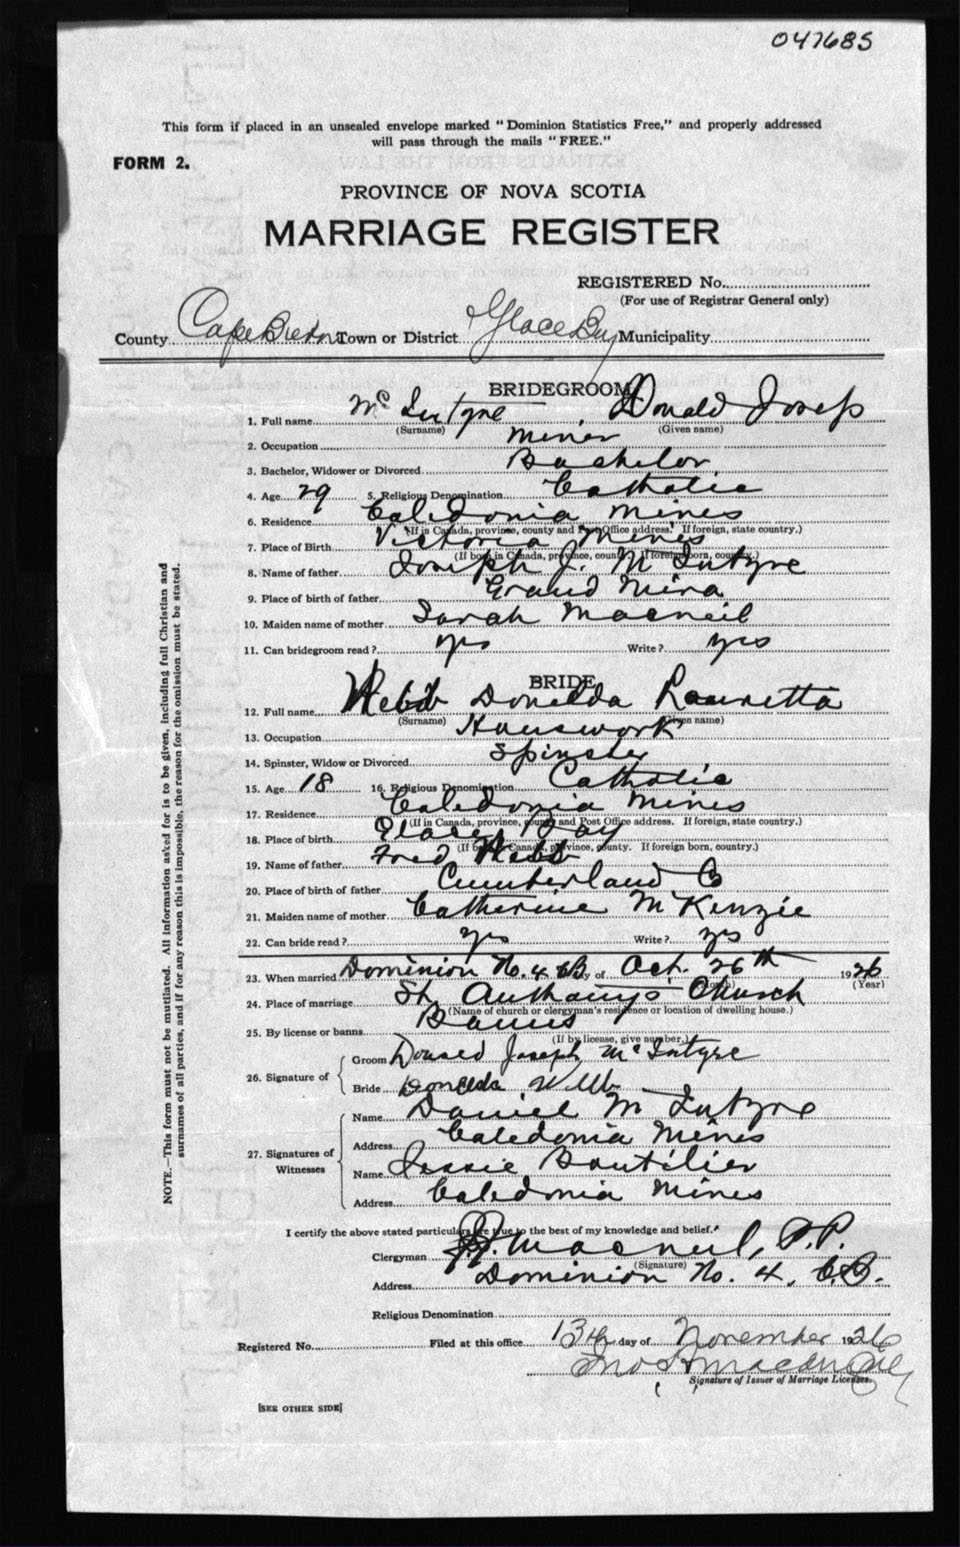 047685
This form if placed in an unsealed envelope marked "Dominion Statistics Free," and properly addressed
will pass through the mails "FREE."
FORM 2.
PROVINCE OF NOVA SCOTIA
MARRIAGE REGISTER
REGISTERED No.
(For use of Registrar General only)
County Cape Breton Town or District Glace Bay Municipality
BRIDEGROOM
1. Full name Mc Intyre, Donald Joseph
(Surname) (Given name)
2. Occupation Miner
3. Bachelor, Widower or Divorced Bachelor
4. Age 29 5. Religious Denomination Catholic
6. Residence Caledonia Mines
(If in Canada, province, county and Post Office address. If foreign, state country.)
7. Place of Birth Victoria Mines
(If born in Canada, province, county. If foreign born, country.)
8. Name of father Joseph J. McIntyre
9. Place of birth of father Grand Mira
10. Maiden name of mother Sarah Macneil
11. Can bridegroom read? yes Write? yes
BRIDE
12. Full name Webb Donelda Lauretta
(Surname) (Given name)
13. Occupation Housework
14. Spinster, Widow or Divorced Spinster
15. Age 18 16. Religious Denomination Catholic
17. Residence Caledonia Mines
(If in Canada, province, county and Post Office address. If foreign, state country.)
18. Place of birth Glace Bay
(If born in Canada, province, county. If foreign born, country.)
19. Name of father Fred Webb
20. Place of birth of father Cumberland Co
21. Maiden name of mother Catherine McKenzie
22. Can bride read? yes Write? yes
23. When married Dominion No. 4 CB day of Oct. 26th 1926
(Month) (Year)
24. Place of marriage St. Anthony's Church
(Name of church or clergyman's residence or location of dwelling house.)
25. By license or banns Banns
(If by license, give number.)
26. Signature of Groom Donald Joseph McIntyre
Bride Donelda Webb
27. Signatures of Witnesses Name Daniel McIntyre
Address Caledonia Mines
Name Jessie Boutilier
Address Caledonia Mines
I certify the above stated particulars are true to the best of my knowledge and belief.
Clergyman Macneil, P.P.
(Signature)
Address Dominion No. 4, C.B.
Religious Denomination
Registered No. Filed at this office 13th day of November 1926
Signature of Issuer of Marriage Licenses.
[SEE OTHER SIDE]
NOTE.—This form must not be mutilated. All information asked for is to be given, including full Christian and
surnames of all parties, and if for any reason this is impossible, the reason for the omission must be stated.